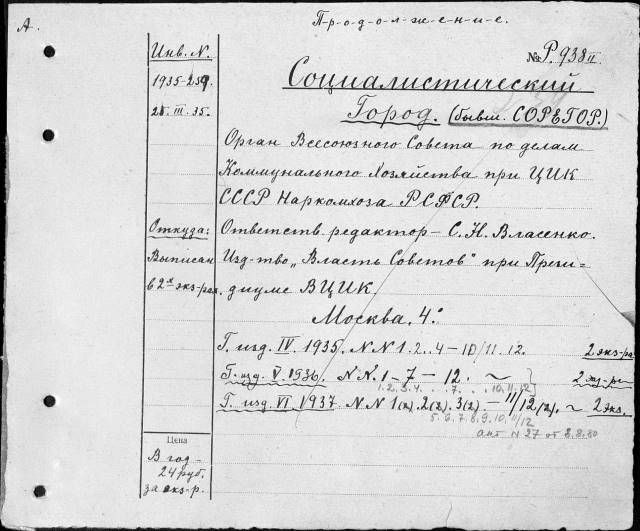 А.
Продолжение.
Инв. N.
1935-259.
25. III. 35.
№ Р. 938 II
Социалистический
Город. (бывш. СОРЕГОР.)
Орган Всесоюзного Совета по делам
Коммунального Хозяйства при ЦИК
СССР Наркомхоза РСФСР.
Откуда:
Выписан
в 2х экз-рах.
Ответств. редактор – С. Н. Власенко.
Изд-тво „Власть Советов" при Прези-
диуме ВЦИК
Москва, 4:
Г. изд. IV 1935. N N 1. 2. 4 – 10/11. 12. 2 экз-ра
Г. изд. V. 1936. N N. 1 – 7 – 12. ~ 2 экз-ра
1. 2. 3. 4. . . 7. . . 10. 11. 12
Г. изд. VI 1937. N N 1(2). 2(2). 3(2) – 11/12(2). ~ 2 экз.
5. 6. 7. 8. 9. 10. 11/12
акт N 27 от 8.80
Цена
В год –
24 руб.
за экз-р.